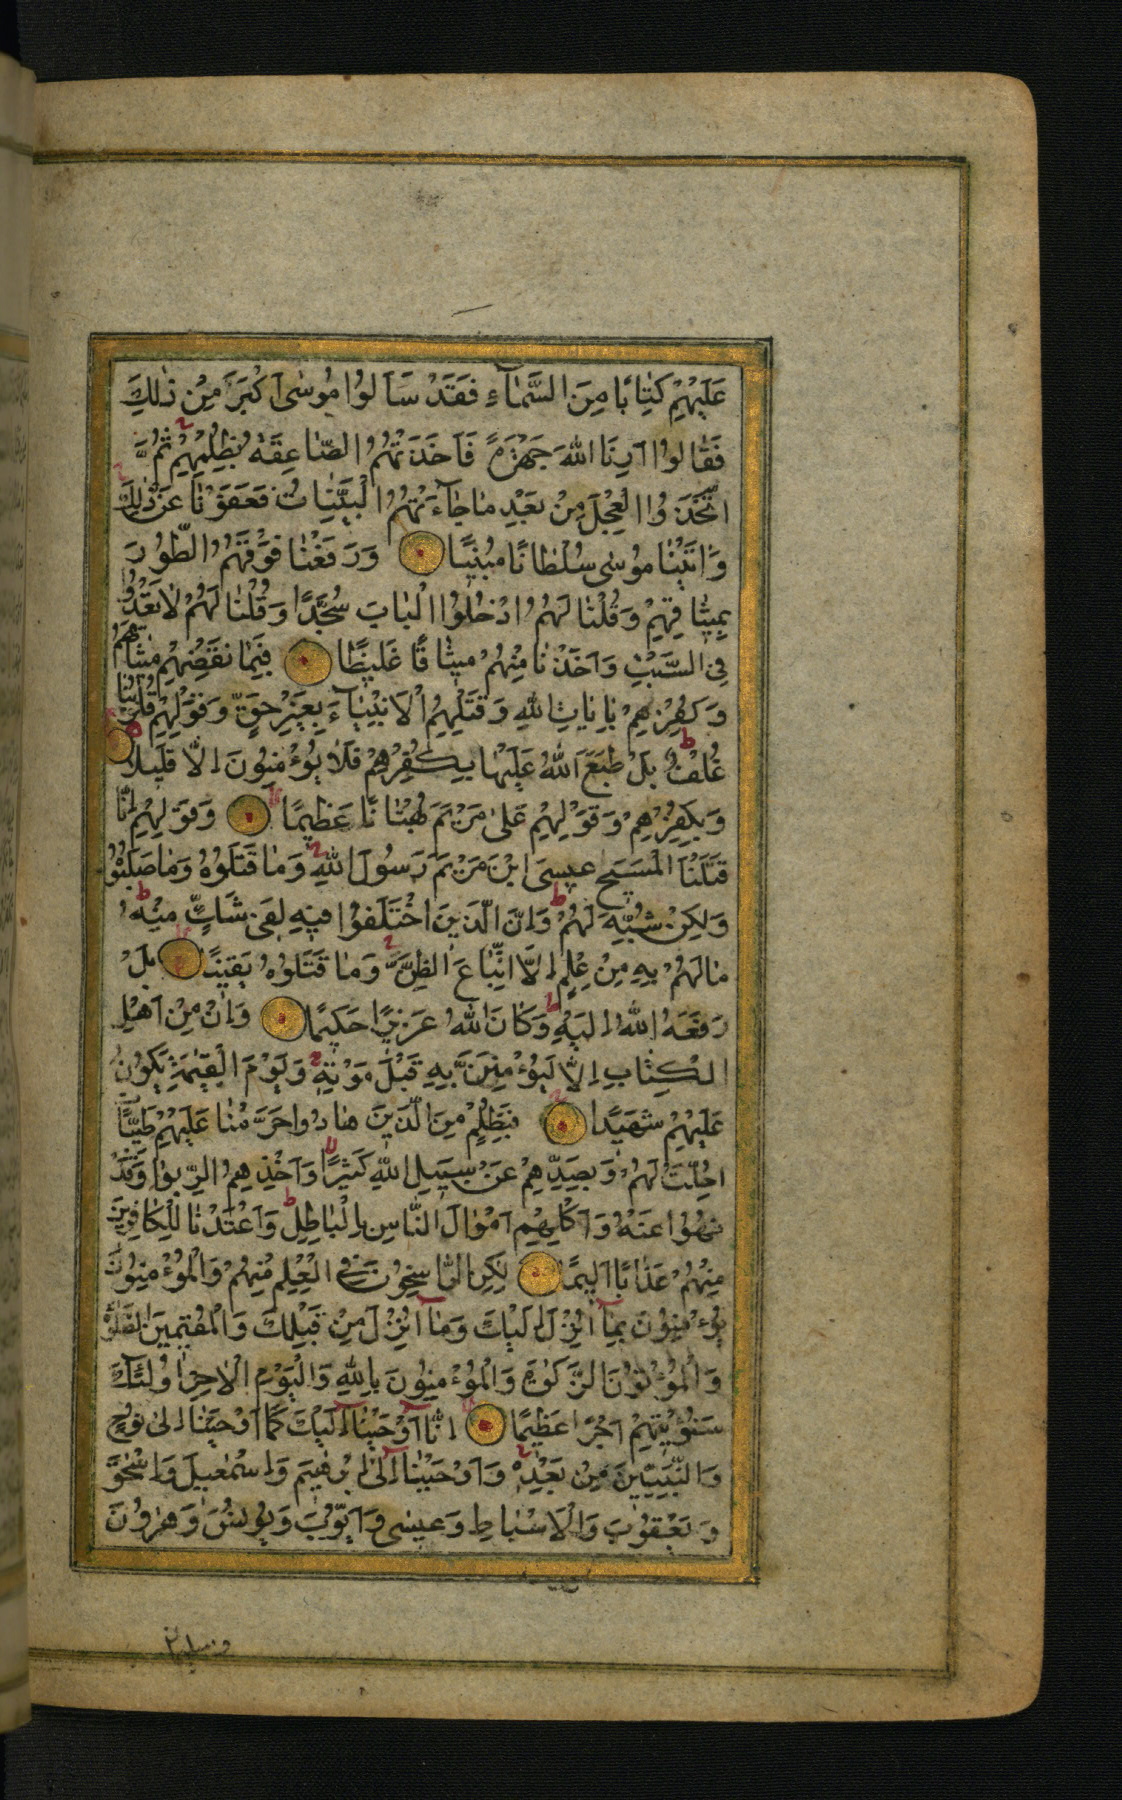 عَلَيْهِمْ كِتَابًا مِنَ السَّمَآءِ فَقَدْ سَاَلُوا مُوسٰى اَكْبَرَ مِنْ ذٰلِكَ
فَقَالُوا اَرِنَا اللّٰهَ جَهْرَةً فَاَخَذَتْهُمُ الصَّاعِقَةُ بِظُلْمِهِمْ ثُمَّ
اتَّخَذُوا الْعِجْلَ مِنْ بَعْدِ مَا جَآءَتْهُمُ الْبَيِّنَاتُ فَعَفَوْنَا عَنْ ذٰلِكَ
وَاٰتَيْنَا مُوسٰى سُلْطَانًا مُبِينًا وَرَفَعْنَا فَوْقَهُمُ الطُّورَ
بِمِيثَاقِهِمْ وَقُلْنَا لَهُمُ ادْخُلُوا الْبَابَ سُجَّدًا وَقُلْنَا لَهُمْ لَا تَعْدُوا
فِى السَّبْتِ وَاَخَذْنَا مِنْهُمْ مِيثَاقًا غَلِيظًا فَبِمَا نَقْضِهِمْ مِيثَاقَهُمْ
وَكُفْرِهِمْ بِاٰيَاتِ اللّٰهِ وَقَتْلِهِمُ الْاَنْبِيَآءَ بِغَيْرِ حَقٍّ وَقَوْلِهِمْ قُلُوبُنَا
غُلْفٌ بَلْ طَبَعَ اللّٰهُ عَلَيْهَا بِكُفْرِهِمْ فَلَا يُؤْمِنُونَ اِلَّا قَلِيلًا
وَبِكُفْرِهِمْ وَقَوْلِهِمْ عَلٰى مَرْيَمَ بُهْتَانًا عَظِيمًا وَقَوْلِهِمْ اِنَّا
قَتَلْنَا الْمَسِيحَ عِيسَى ابْنَ مَرْيَمَ رَسُولَ اللّٰهِ وَمَا قَتَلُوهُ وَمَا صَلَبُوهُ
وَلٰكِنْ شُبِّهَ لَهُمْ وَاِنَّ الَّذِينَ اخْتَلَفُوا فِيهِ لَفِى شَكٍّ مِنْهُ
مَا لَهُمْ بِهِ مِنْ عِلْمٍ اِلَّا اتِّبَاعَ الظَّنِّ وَمَا قَتَلُوهُ يَقِينًا بَلْ
رَفَعَهُ اللّٰهُ اِلَيْهِ وَكَانَ اللّٰهُ عَزِيزًا حَكِيمًا وَاِنْ مِنْ اَهْلِ
الْكِتَابِ اِلَّا لَيُؤْمِنَنَّ بِهِ قَبْلَ مَوْتِهِ وَيَوْمَ الْقِيٰمَةِ يَكُونُ
عَلَيْهِمْ شَهِيدًا فَبِظُلْمٍ مِنَ الَّذِينَ هَادُوا حَرَّمْنَا عَلَيْهِمْ طَيِّبَاتٍ
اُحِلَّتْ لَهُمْ وَبِصَدِّهِمْ عَنْ سَبِيلِ اللّٰهِ كَثِيرًا وَاَخْذِهِمُ الرِّبٰوا وَقَدْ
نُهُوا عَنْهُ وَاَكْلِهِمْ اَمْوَالَ النَّاسِ بِالْبَاطِلِ وَاَعْتَدْنَا لِلْكَافِرِينَ
مِنْهُمْ عَذَابًا اَلِيمًا لٰكِنِ الرَّاسِخُونَ فِى الْعِلْمِ مِنْهُمْ وَالْمُؤْمِنُونَ
يُؤْمِنُونَ بِمَآ اُنْزِلَ اِلَيْكَ وَمَآ اُنْزِلَ مِنْ قَبْلِكَ وَالْمُقِيمِينَ الصَّلٰوةَ
وَالْمُؤْتُونَ الزَّكٰوةَ وَالْمُؤْمِنُونَ بِاللّٰهِ وَالْيَوْمِ الْاٰخِرِ اُولٰٓئِكَ
سَنُؤْتِيهِمْ اَجْرًا عَظِيمًا اِنَّآ اَوْحَيْنَآ اِلَيْكَ كَمَآ اَوْحَيْنَآ اِلٰى نُوحٍ
وَالنَّبِيِّينَ مِنْ بَعْدِهِ وَاَوْحَيْنَآ اِلٰى اِبْرٰهِيمَ وَاِسْمٰعِيلَ وَاِسْحٰقَ
وَيَعْقُوبَ وَالْاَسْبَاطِ وَعِيسٰى وَاَيُّوبَ وَيُونُسَ وَهٰرُونَ
وسليمن